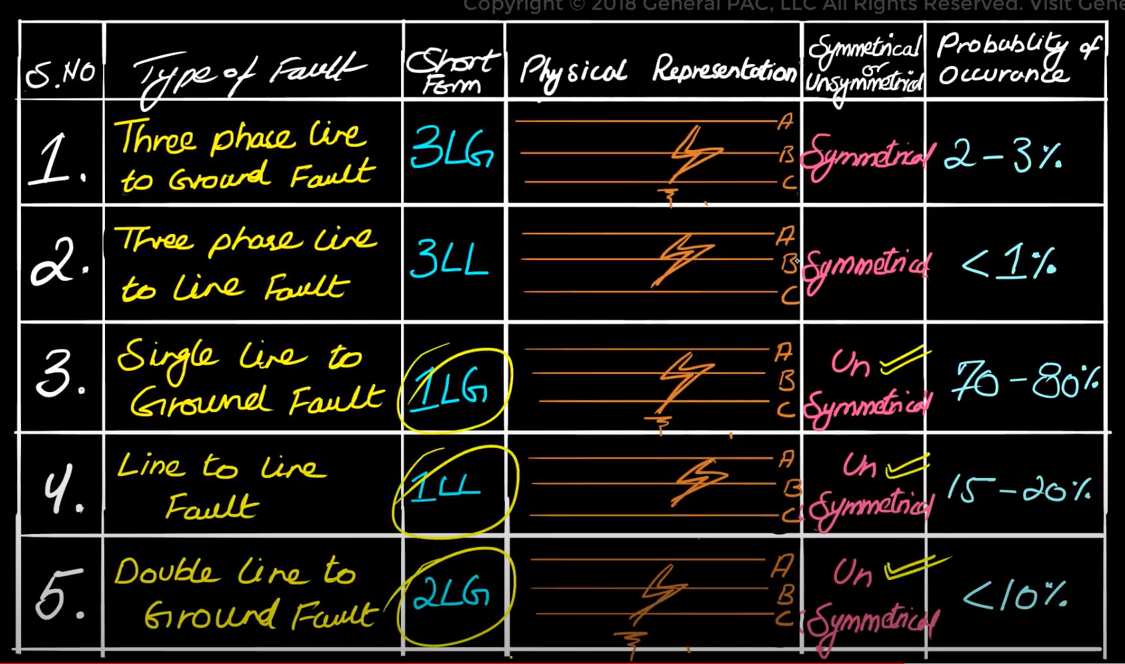 Copyright © 2018 General PAC, LLC All Rights Reserved. Visit Gene
S.NO
Type of Fault
Short
Form
Physical Representation
Symmetrical
or
Unsymmetrical
Probablity of
Occurance
1.
Three phase line
to Ground Fault
3LG
A
B
C
Symmetrical
2-3%
2.
Three phase line
to Line Fault
3LL
A
B
C
Symmetrical
<1%
3.
Single line to
Ground Fault
1LG
A
B
C
Un
Symmetrical
70-80%
4.
Line to line
Fault
1LL
A
B
C
Un
Symmetrical
15-20%
5.
Double line to
Ground Fault
2LG
A
B
C
Un
Symmetrical
<10%